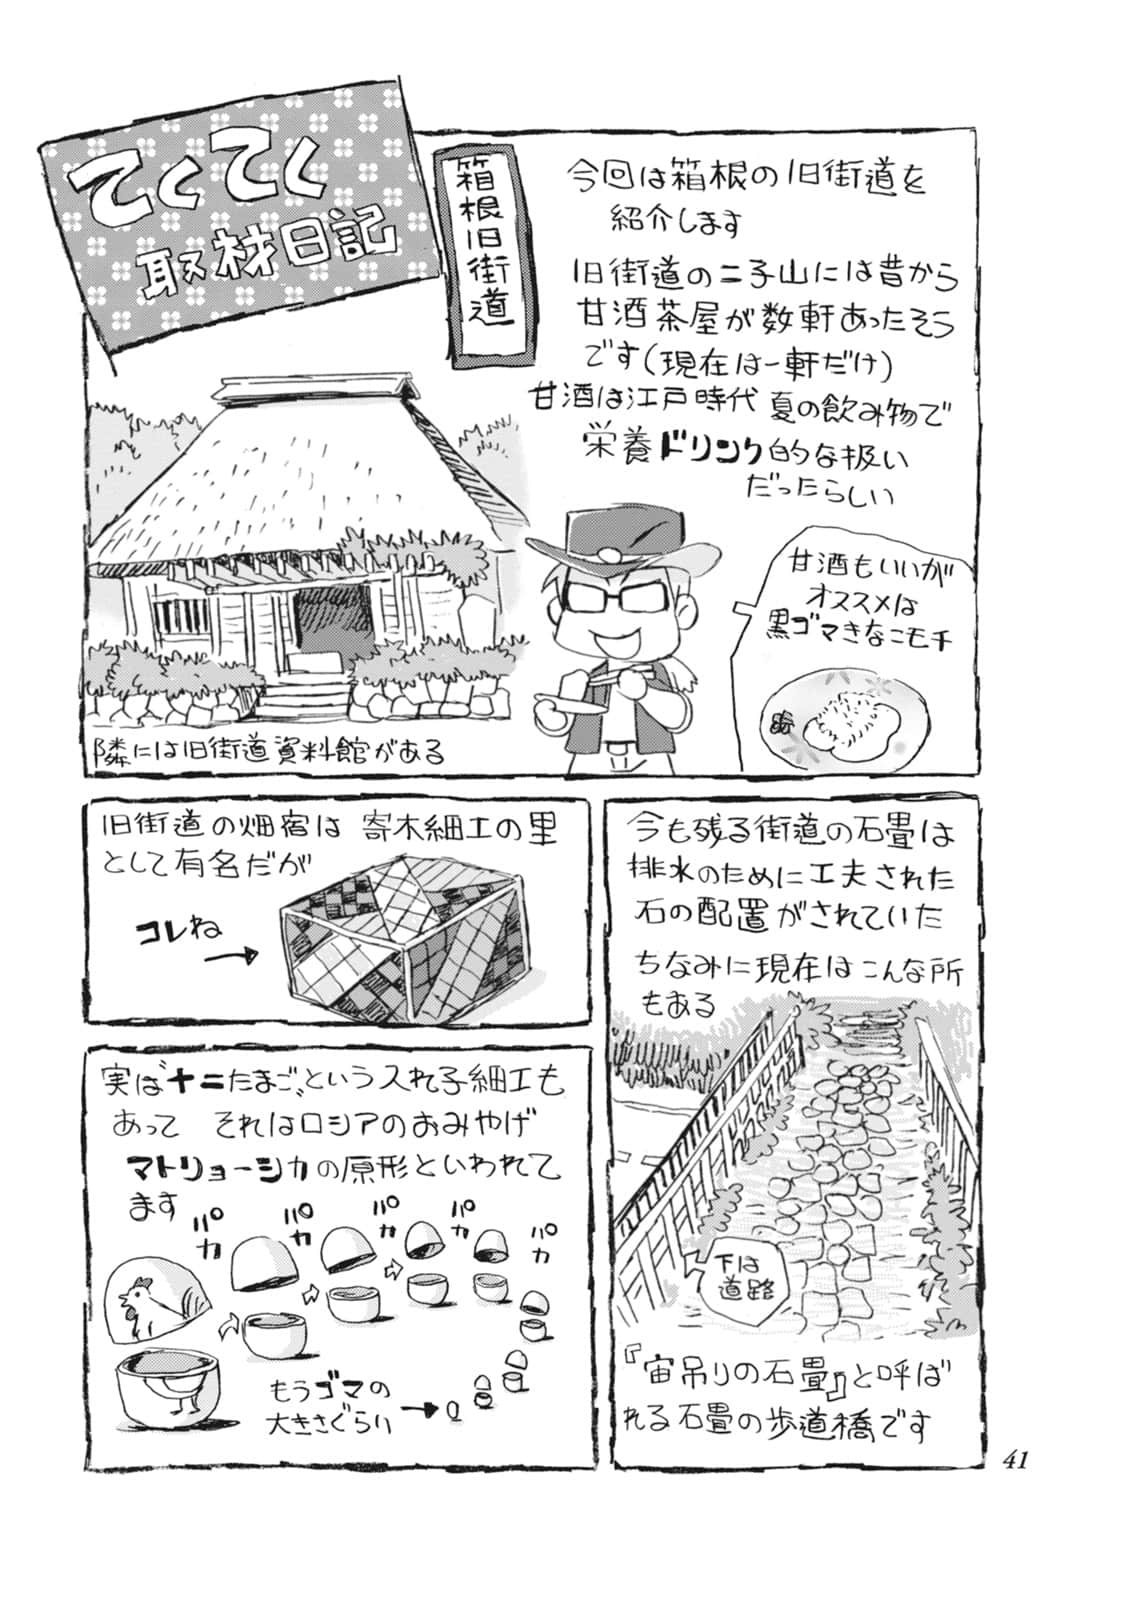 てくてく
取材日記
箱根旧街道
今回は箱根の旧街道を
紹介します
旧街道の二子山には昔から
甘酒茶屋が数軒あったそう
です(現在は一軒だけ)
甘酒は江戸時代 夏の飲み物で
栄養ドリンク的な扱い
だったらしい
甘酒もいいが
オススメは
黒ゴマきなこモチ
隣には旧街道資料館がある
今も残る街道の石畳は
排水のために工夫された
石の配置がされていた
ちなみに現在はこんな所
もある
下は
道路
『宙吊りの石畳』と呼ば
れる石畳の歩道橋です
旧街道の畑宿は 寄木細工の里
として有名だが
コレね
実は〝十二たまご〟という入れ子細工も
あって それはロシアのおみやげ
マトリョーシカの原形といわれて
ます
パカ
パカ
パカ
パカ
パカ
もうゴマの
大きさぐらい
41